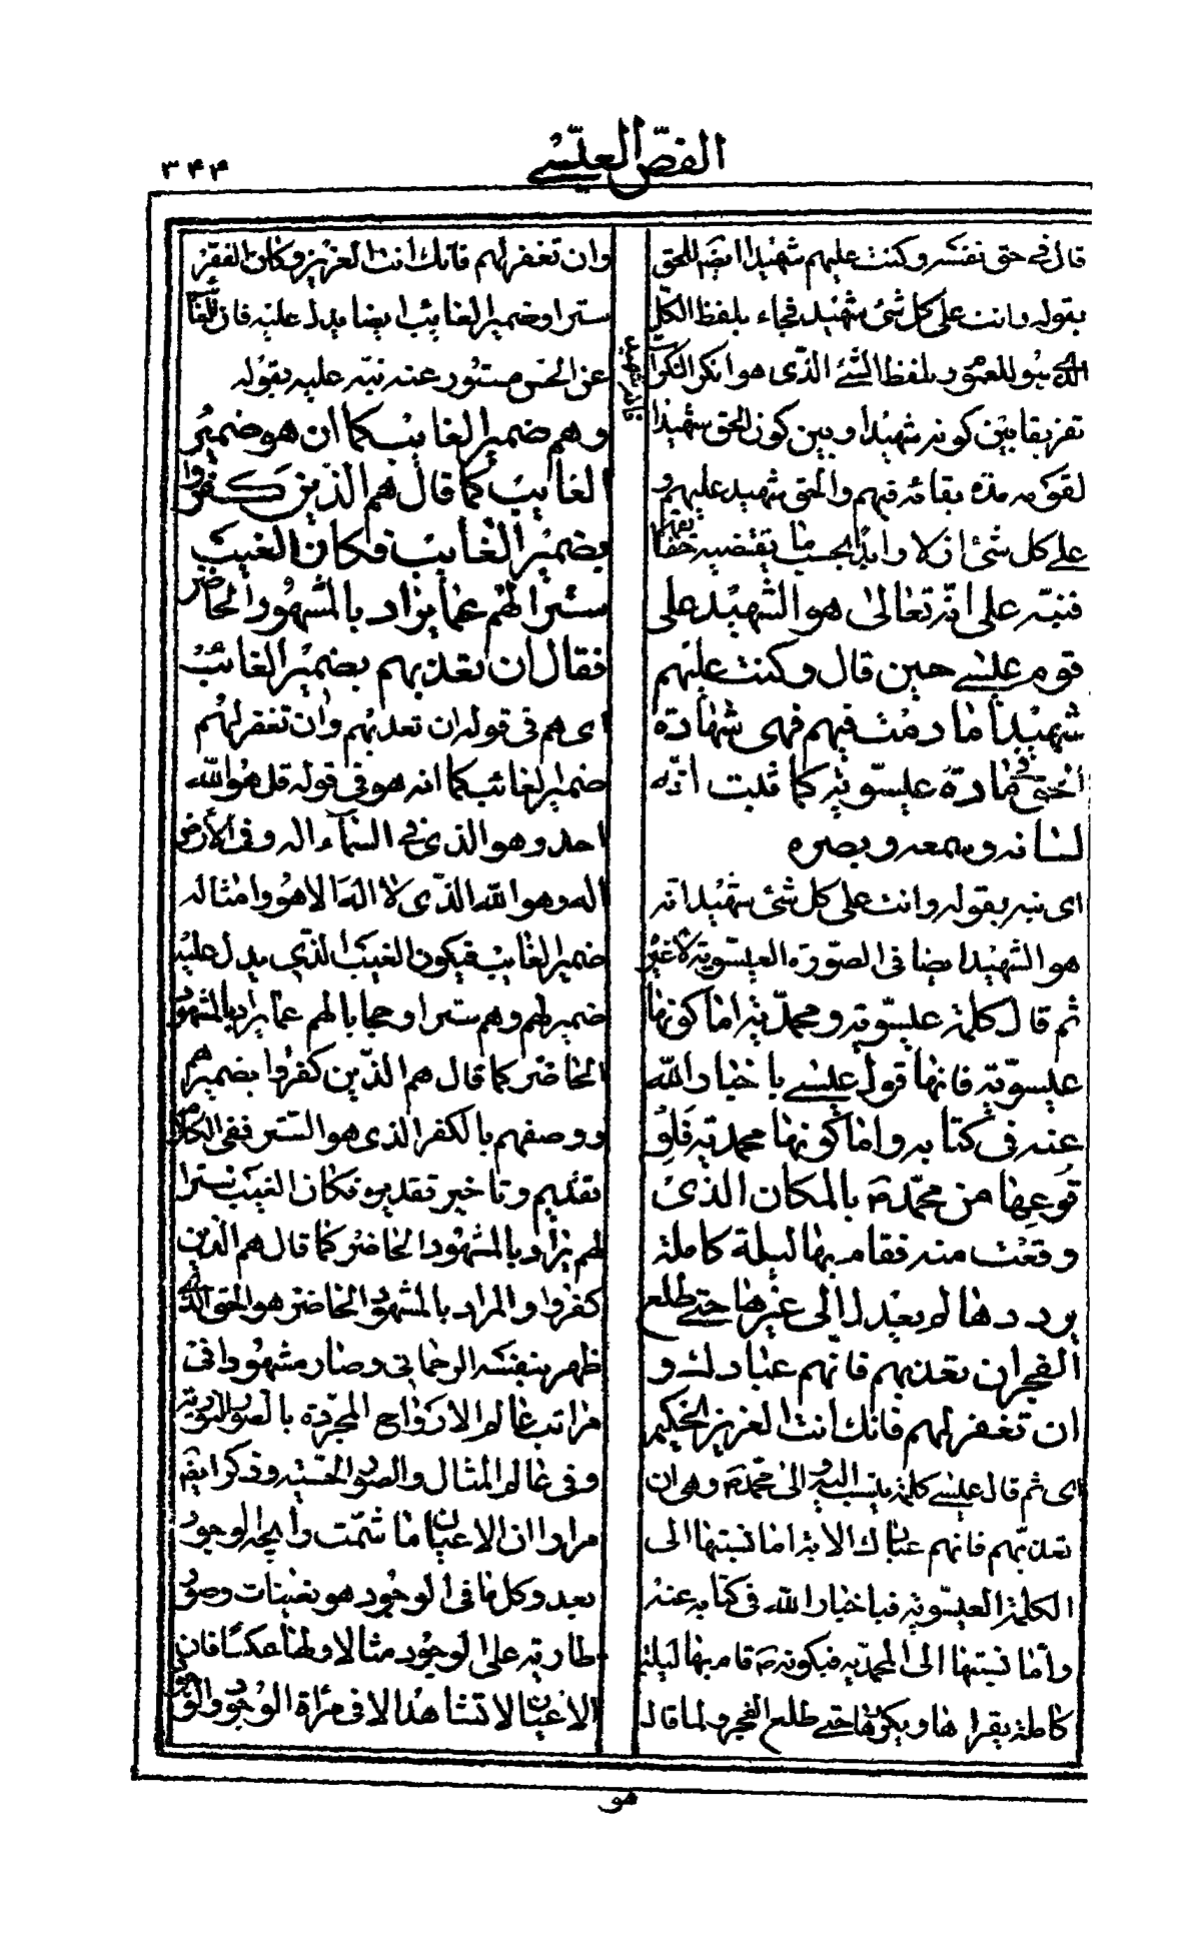 الفصّ العيسى
۳۴۴
قال فى حق نفسه وكنت عليهم شهيدا ايضا للحق
بقوله وانت على كل شئ شهيد فجاء بلفظ الكلّ
للعموم وبلفظ الشئ الذى هو انكر النكرات
تفريقا بين كونه شهيدا وبين كون الحق شهيدا
لقومه مدة بقائه فيهم والحق شهيد عليهم و
على كل شئ ازلا وابدا بحسب ما يقتضيه
فنبّه على انه تعالى هو الشهيد على
قوم عيسى حين قال وكنت عليهم
شهيدا ما دمت فيهم فهى شهادة
الحق فى مادة عيسويّة كما ثبت انّه
لسانه وسمعه وبصره
اى نبه بقوله وانت على كل شئ شهيد انه
هو الشهيد ايضا فى الصّورة العيسوية لا غير
ثم قال كلمة عيسويّة ومحمدّيّة اما كونها
عيسويّة فانها قول عيسى باخبار الله
عنه فى كتابه واما كونها محمديّة فلو
قوعها من محمّد ص بالمكان الذى
وقعت منه فقام بها ليلة كاملة
يرددها لم يعدل الى غيرها حتى طلع
الفجر ان تعذبهم فانّهم عبادك و
ان تغفر لهم فانك انت العزيز الحكيم
اى ثم قال عيسى كلمة الى محمّد ص وهى ان
تعذبهم فانهم عبادك الآية اما نسبتها الى
الكلمة العيسوية فباخبار الله فى كتابه عنه
وأما نسبتها الى المحمدية فبكونه ص قام بها ليلة
كاملة يقرأها ويكررها حتى طلع الفجر ولما قال
وان تغفر لهم فانك انت العزيز وكان الغفر
سترا وضمير الغائب ايضا يدل عليه فان الغائب
عن الحس مستور عنه نبّه عليه بقوله
وهم ضمير الغايب كما ان هو ضمير
الغايب كما قال هم الذّين كفروا
بضمير الغايب فكان الغيب
سترا لهم عما يراد بالمشهود الحاضر
فقال ان تعذبهم بضمير الغائب
اى هم فى قوله ان تعذبهم وان تغفر لهم
ضمير الغائب كما انه هو فى قوله قل هو الله
احد وهو الذى فى السمآء اله وفى الأرض
اله وهو الله الذى لا اله الا هو وامثاله
ضمير الغايب فيكون الغيب الذى يدل عليه
ضمير لهم وهم سترا وحجابا لهم عما يراد بالمشهود
الحاضر كما قال هم الذين كفروا بضميرهم
ووصفهم بالكفر الذى هو الستر ففى الكلام
تقديم وتاخير تقديره فكان الغيب سترا
لهم يراد بالمشهود الحاضر كما قال هم الذين
كفروا والمراد بالمشهود الحاضر هو الحق الذى
ظهر بنفسه الرحمانى وصار مشهودا فى
مراتب عالم الارواح المجرّدة بالصور النورية
وفى عالم المثال والصور الحسّية وذكر ايضا
مرارا ان الاعيان ما شمّت رايحة الوجود
بعد وكل ما فى الوجود هو تعينات وصور
طارية على الوجود مثالا ولها عكسا فان
الاعيان لا تشاهد الا فى مرآة الوجود والحق
هو